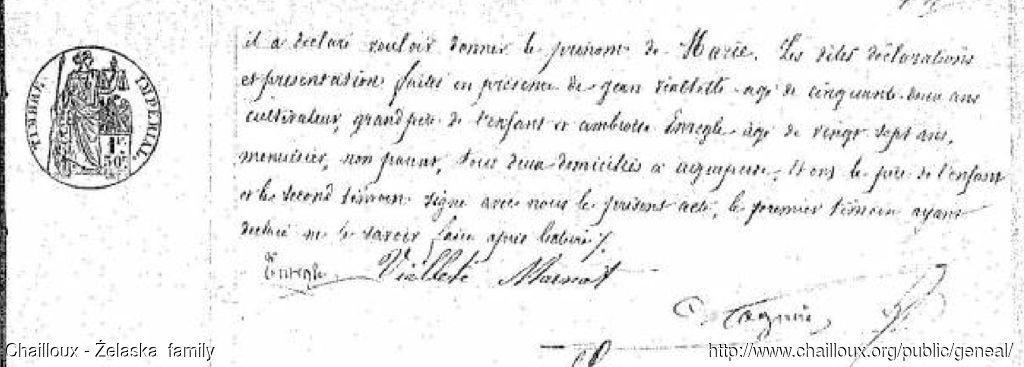 il a déclaré vouloir donner le prénom de Marie. Les dites déclarations
et présentation faites en présence de jean viallette agé de cinquante deux ans
cultivateur, grand père de l'enfant et ambroise Enregle agé de vingt sept ans,
menuisier, non parent, tous deux domiciliés à aigueperse, et ont le père de l'enfant
et le second témoin signé avec nous le présent acte, le premier témoin ayant
déclaré ne le savoir faire après lecture /.
Enregle Viallette
TIMBRE IMPERIAL
1F.
50c.
Chailloux - Żelaska family
http://www.chailloux.org/public/geneal/